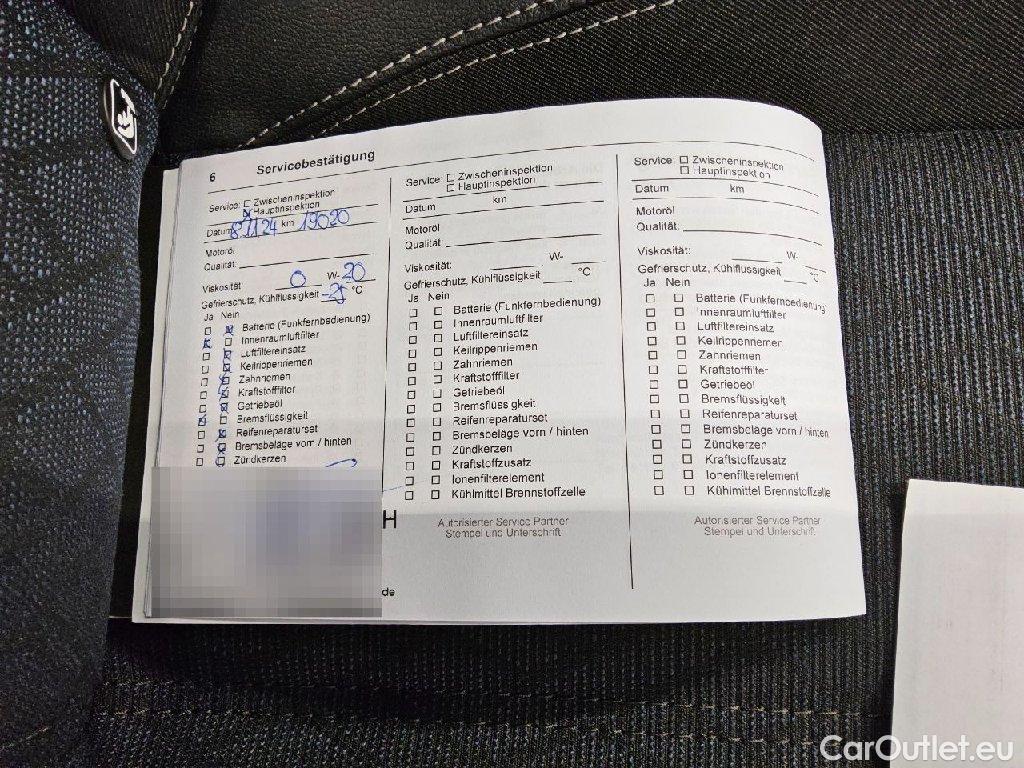 6 Servicebestätigung
Service: Zwischeninspektion
Hauptinspektion
Datum 8.11.24 km 19020
Motoröl
Qualität:
Viskosität 0 W- 20
Gefrierschutz, Kühlflüssigkeit -25 °C
Ja Nein
Batterie (Funkfernbedienung)
Innenraumluftfilter
Luftfiltereinsatz
Keilrippenriemen
Zahnriemen
Kraftstofffilter
Getriebeöl
Bremsflüssigkeit
Reifenreparaturset
Bremsbeläge vorn / hinten
Zündkerzen
H
de
Service: Zwischeninspektion
Hauptinspektion
Datum km
Motoröl
Qualität:
Viskosität: W-
Gefrierschutz, Kühlflüssigkeit °C
Ja Nein
Batterie (Funkfernbedienung)
Innenraumluftfilter
Luftfiltereinsatz
Keilrippenriemen
Zahnriemen
Kraftstofffilter
Getriebeöl
Bremsflüssigkeit
Reifenreparaturset
Bremsbeläge vorn / hinten
Zündkerzen
Kraftstoffzusatz
Ionenfilterelement
Kühlmittel Brennstoffzelle
Autorisierter Service Partner
Stempel und Unterschrift
Service: Zwischeninspektion
Hauptinspektion
Datum km
Motoröl
Qualität:
Viskosität: W-
Gefrierschutz, Kühlflüssigkeit °C
Ja Nein
Batterie (Funkfernbedienung)
Innenraumluftfilter
Luftfiltereinsatz
Keilrippenriemen
Zahnriemen
Kraftstofffilter
Getriebeöl
Bremsflüssigkeit
Reifenreparaturset
Bremsbeläge vorn / hinten
Zündkerzen
Kraftstoffzusatz
Ionenfilterelement
Kühlmittel Brennstoffzelle
Autorisierter Service Partner
Stempel und Unterschrift
CarOutlet.eu